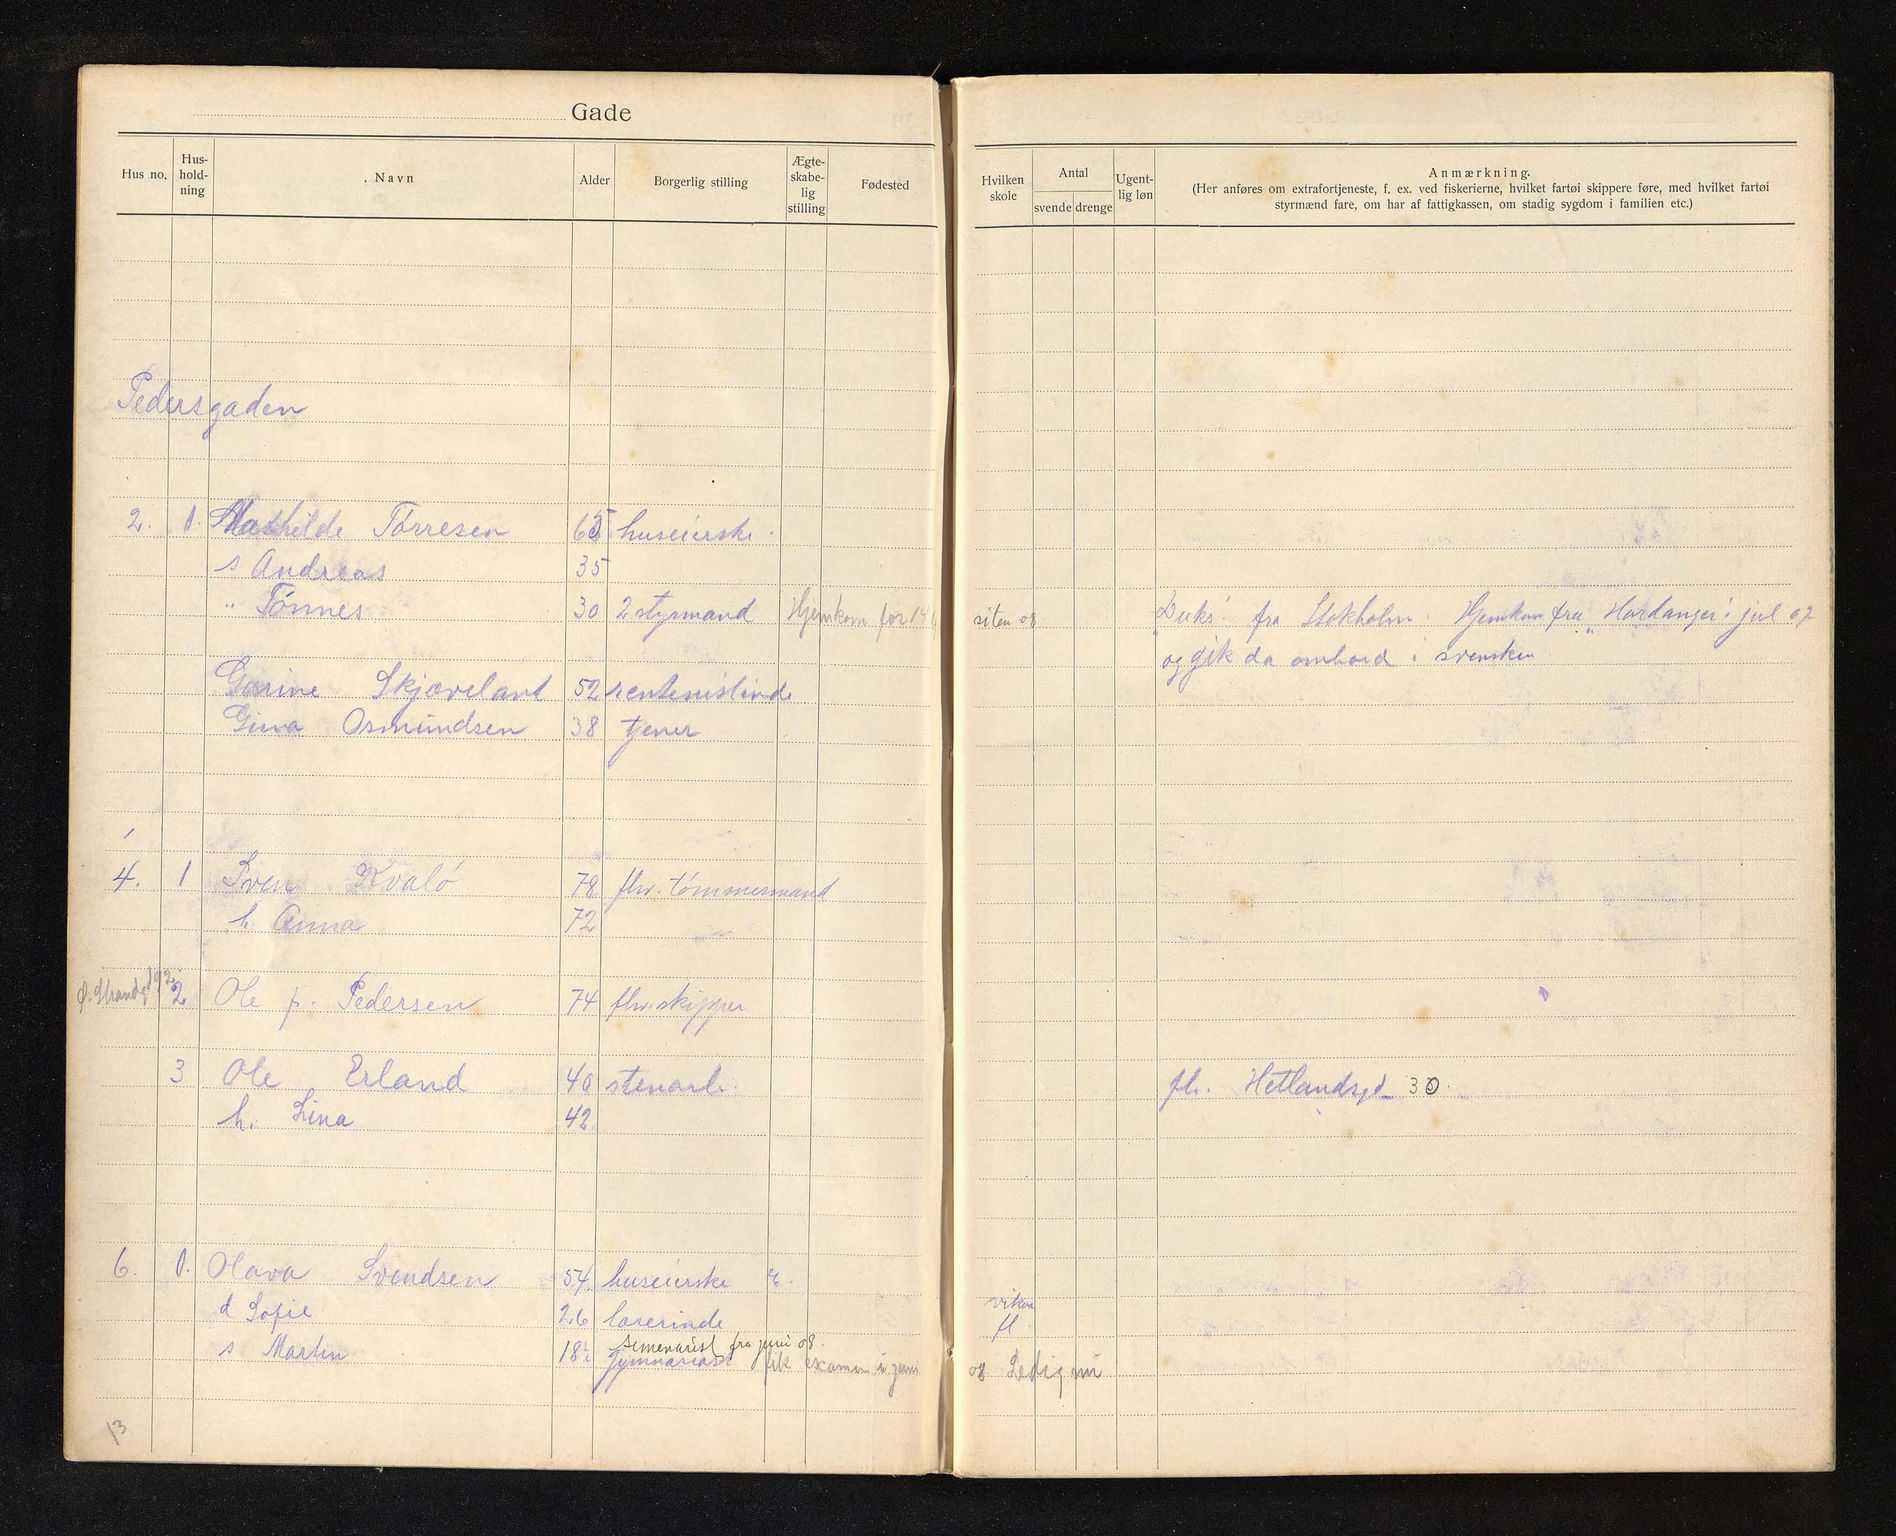 Gade
Hus no. Hus-hold-ning . Navn Alder Borgerlig stilling Ægte-skabe-lig stilling Fødested Hvilken skole Antal svende drenge Ugent-lig løn Anmærkning.
(Her anføres om extrafortjeneste, f. ex. ved fiskerierne, hvilket fartøi skippere føre, med hvilket fartøi
styrmænd fare, om har af fattigkassen, om stadig sygdom i familien etc.)
Pedersgaden
2. 1. Mathilde Tørresen 65 huseierske.
s Andreas 35
" Tønnes 30 2 styrmand Hjemkom for siden 08 "Duks" fra Stokholm. Hjemkom fra "Hardanger" jul 07
og gik da ombord i svensken
Gurine Skjæveland 52 rentenistinde
Gina Osmundsen 38 tjener
4. 1 Sven Kvalø 78 fhv. tømmermand
h. Anna 72
Ø. Strandgd 92 2 Ole p. Pedersen 74 fhv. skipper
3 Ole Erland 40 stenarb. fh. Hetlandsgd 30.
h. Lina 42
6. 1. Olava Svendsen 54 huseierske e.
d Sofie 26 lærerinde vikar
fl
s Martin 18 semenarist fra juni 08.
gymnasiast fik examen i juni 08 Ledig nu
13